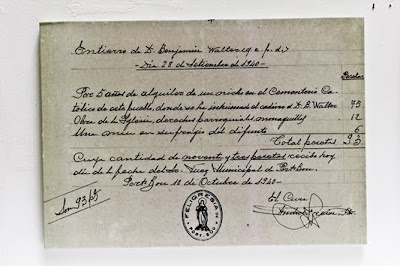 Entierro de D. Benjamin Walter (q. e. p. d.)
- Dia 28 de Setiembre de 1940 -
Pesetas
Por 5 años de alquiler de un nicho en el Cementerio Ca-
tólico de este pueblo, donde se ha inhumado el cadáver de D. B. Walter 75
Obra de la Iglesia, derechos parroquiales, monaguillos 12
Una misa en sufragio del difunto 6
Total pesetas 93
Cuya cantidad de noventa y tres pesetas recibo hoy
dia de la fecha del Sr. Juez Municipal de Port-Bou.
Port-Bou 1º de Octubre de 1940-
Son 93 pts
El Cura
FELIGRESIA
PORT-BOU